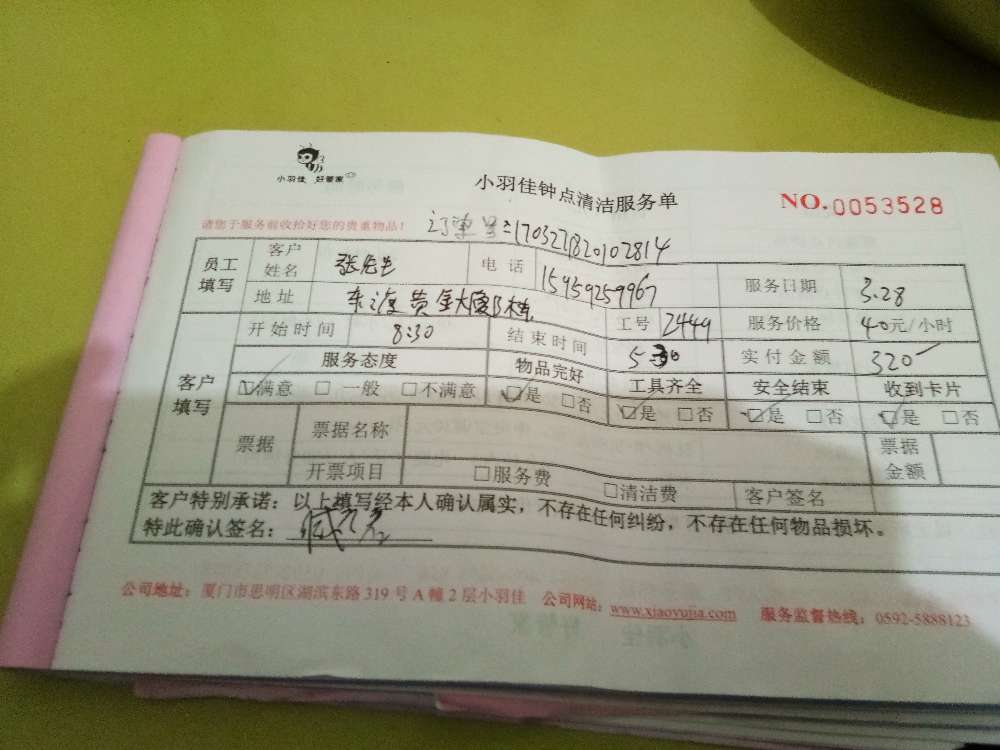 小羽佳 好管家
小羽佳钟点清洁服务单
NO.0053528
请您于服务前收拾好您的贵重物品!
订单号:1703271820102814
员工填写 客户姓名 张先生 电话 15959259967 服务日期 3.28
地址 东渡黄金大厦B栋 工号 2449 服务价格 40元/小时
客户填写 开始时间 8:30 结束时间 5:30 实付金额 320
服务态度 物品完好 工具齐全 安全结束 收到卡片
☑满意 □一般 □不满意 ☑是 □否 ☑是 □否 ☑是 □否 ☑是 □否
票据 票据名称 票据金额
开票项目 □服务费 □清洁费 客户签名
客户特别承诺:以上填写经本人确认属实,不存在任何纠纷,不存在任何物品损坏。
特此确认签名:
公司地址:厦门市思明区湖滨东路319号A幢2层小羽佳 公司网站:www.xiaoyujia.com 服务监督热线:0592-5888123